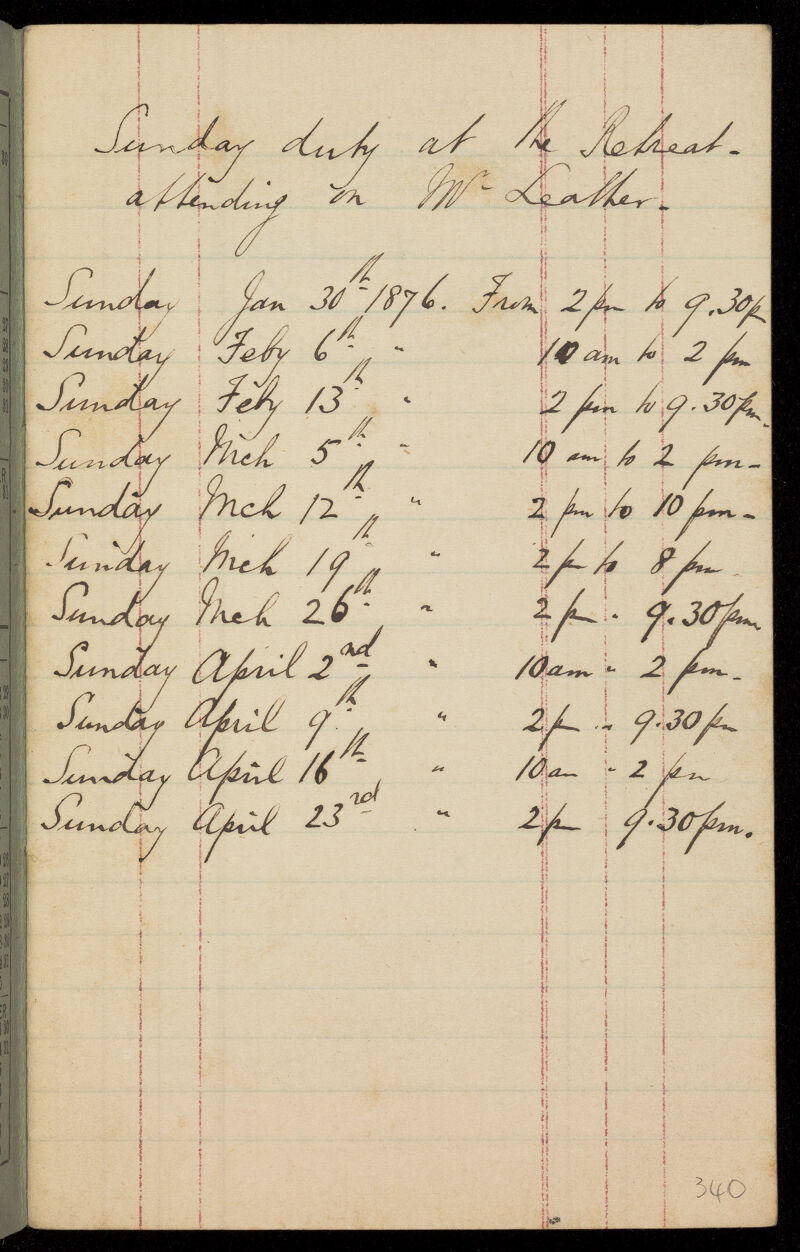 Sunday duty at the Retreat -
attending on Mr Leather -
Sunday Jan 30th 1876. From 2 pm to 9.30p
Sunday Feby 6th " 10 am to 2 pm
Sunday Feby 13th " 2 pm to 9.30pm.
Sunday Mch 5th " 10 am to 2 pm -
Sunday Mch 12th " 2 pm to 10 pm -
Sunday Mch 19th " 2 pm to 8 pm
Sunday Mch 26th " 2 pm " 9.30pm
Sunday April 2nd " 10am " 2 pm -
Sunday April 9th " 2 pm " 9.30pm
Sunday April 16th " 10 am " 2 pm
Sunday April 23rd " 2 pm 9.30pm.
340